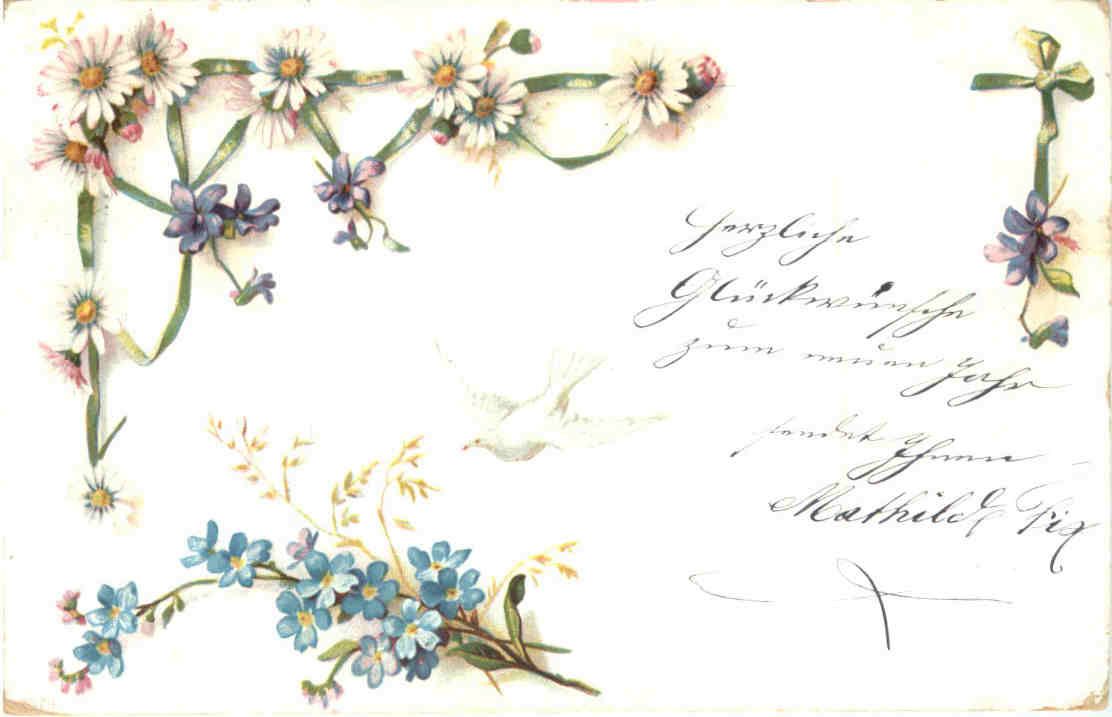 Herzliche
Glückwünsche
zum neuen Jahr
sendet Ihnen
Mathilde Pix